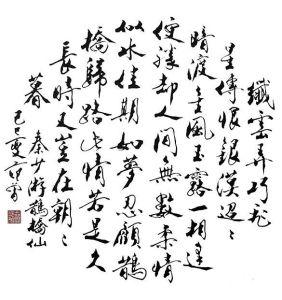 纖雲弄巧飛
星傳恨銀漢迢〻
暗渡金風玉露一相逢
便勝却人間無數柔情
似水佳期如夢忍顧鵲
橋歸路兩情若是久
長時又豈在朝〻
暮
秦少游鵲橋仙
己巳夏